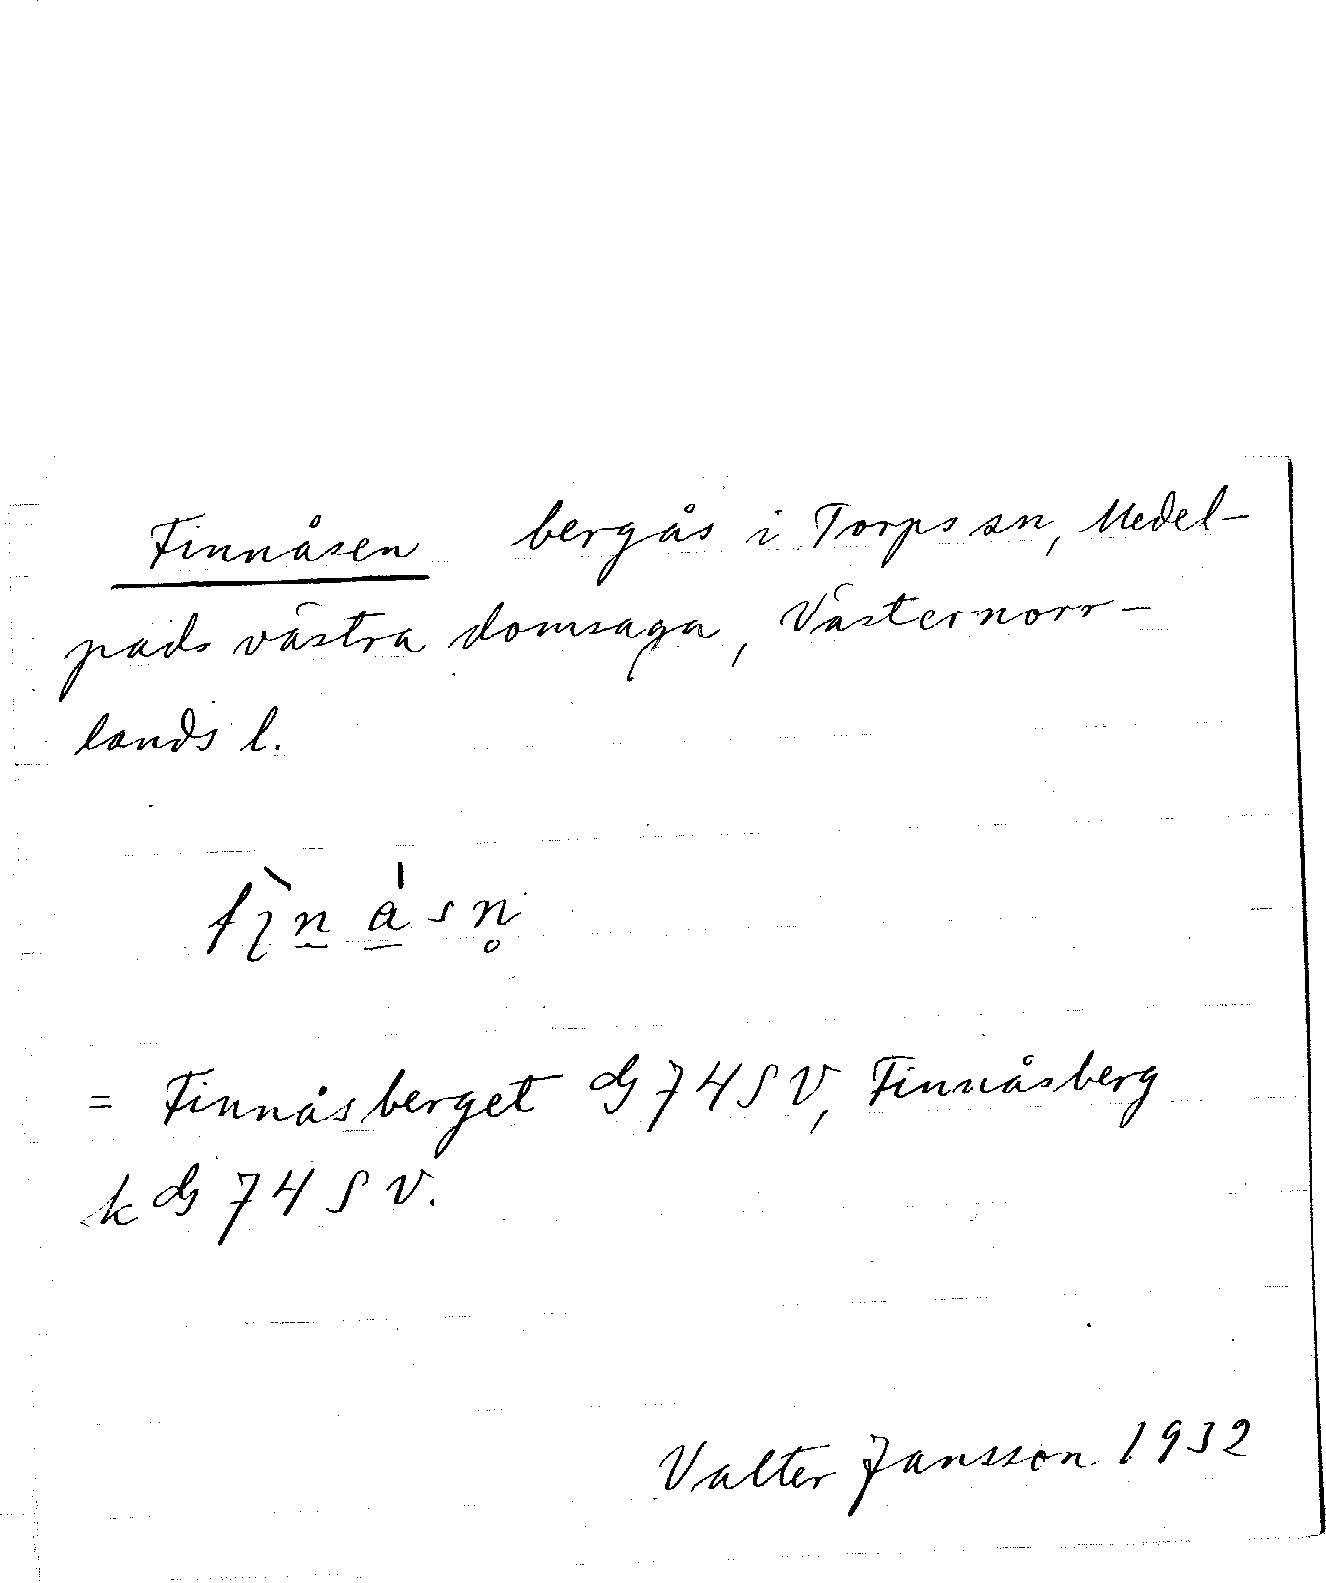 Finnåsen bergås i Torps sn, Medel-
pads västra domsaga, Västernorr-
lands l.
= Finnåsberget dg 74 SV, Finnåsberg
k dg 74 SV.
Valter Jansson 1932